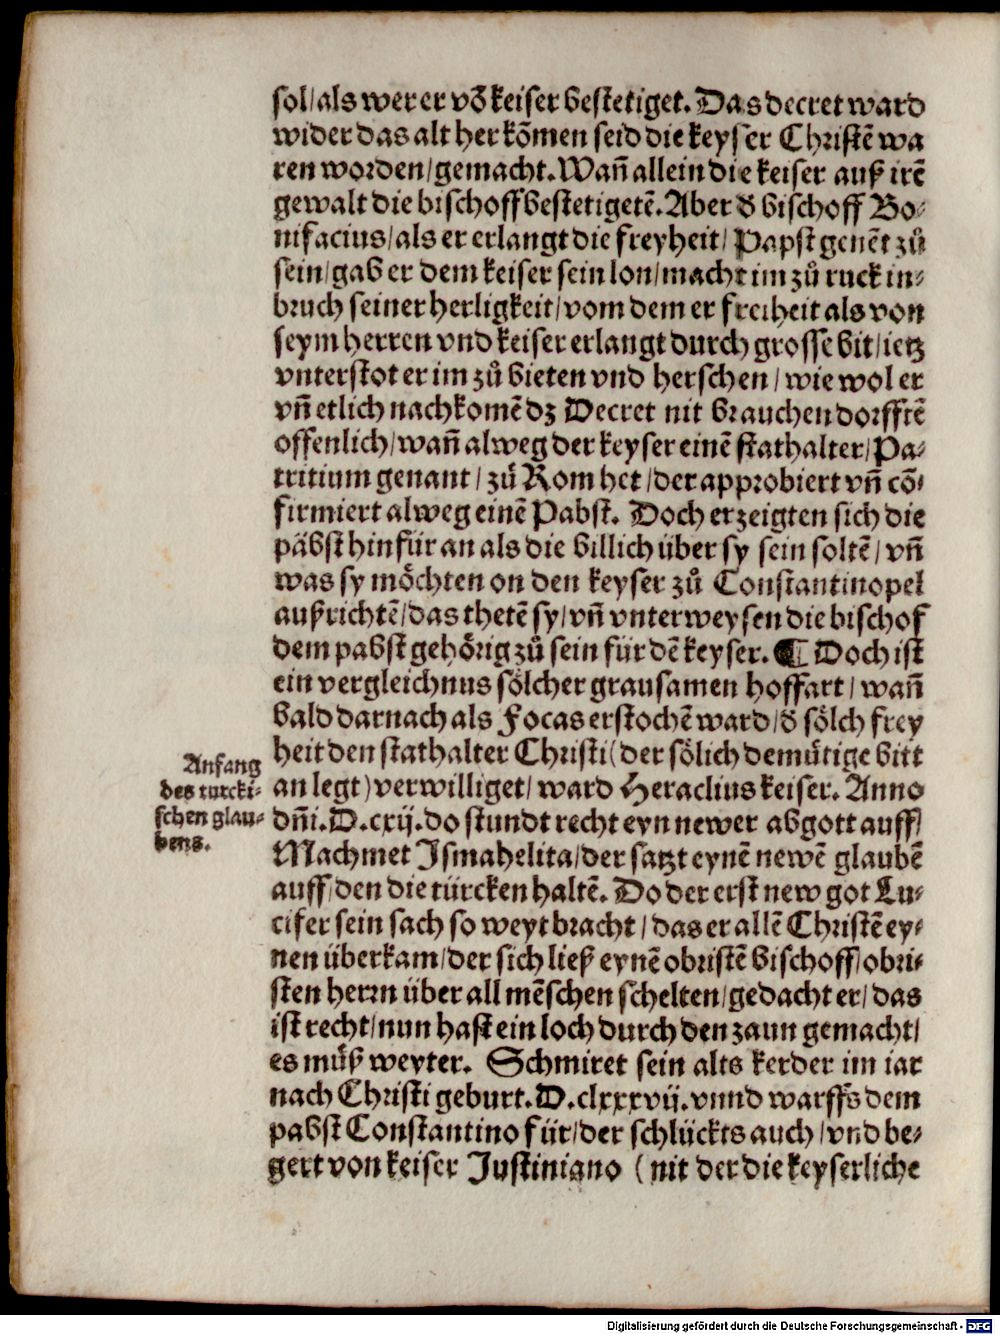 sol/als wer er võ keiser bestetiget. Das decret ward
wider das alt herkõmen seid die keyser Christẽ wa
ren worden/gemacht. Wañ allein die keiser auß irẽ
gewalt die bischoff bestetigetẽ. Aber d̕ bischoff Bo⸗
nifacius/als er erlangt die freyheit/Papst genẽt zů
sein/gab er dem keiser sein lon/macht im zů ruck in⸗
bruch seiner herligkeit/vom dem er freiheit als von
seym herren vnd keiser erlangt durch grosse bit/ietz
vnterstot er im zů bieten vnd herschen/wie wol er
vñ etlich nachkomẽ dz Decret nit brauchen dorfftẽ
offenlich/wañ alweg der keyser einẽ stathalter/Pa⸗
tritium genant/zů Rom het/der approbiert vñ cõ⸗
firmiert alweg einẽ Pabst. Doch erzeigten sich die
päbst hinfür an als die billich über sy sein soltẽ/vñ
was sy möchten on den keyser zů Constantinopel
außrichtẽ/das thetẽ sy/vñ vnterweysen die bischof
dem pabst gehörig zů sein für dẽ keyser. ¶ Doch ist
ein vergleichnus sölcher grausamen hoffart/wañ
bald darnach als Focas erstochẽ ward/d̕ sölch frey
heit den stathalter Christi(der sölich demütige bitt
an legt)verwilliget/ward Heraclius keiser. Anno
dñi.D.cxij.do stundt recht eyn newer abgott auff/
Machmet Ismahelita/der satzt eynẽ newẽ glaubẽ
auff/den die türcken haltẽ. Do der erst new got Lu⸗
cifer sein sach so weyt bracht/das er allẽ Christẽ ey⸗
nen überkam/der sich ließ eynẽ obristẽ bischoff/obri⸗
sten herrn über all mẽschen schelten/gedacht er/das
ist recht/nun hast ein loch durch den zaun gemacht/
es můß weyter. Schmiret sein alts kerder im iar
nach Christi geburt.D.clxxxvij.vnnd warffs dem
pabst Constantino für/der schlückts auch/vnd be⸗
gert von keiser Justiniano (nit der die keyserliche
Anfang
des turcki⸗
schen glau⸗
bens.
Digitalisierung gefördert durch die Deutsche Forschungsgemeinschaft - DFG